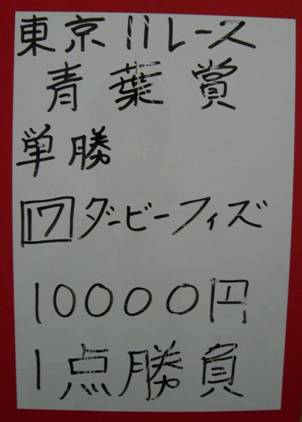 東京11レース
青葉賞
単勝
17 ダービーフィズ
10000円
1点勝負